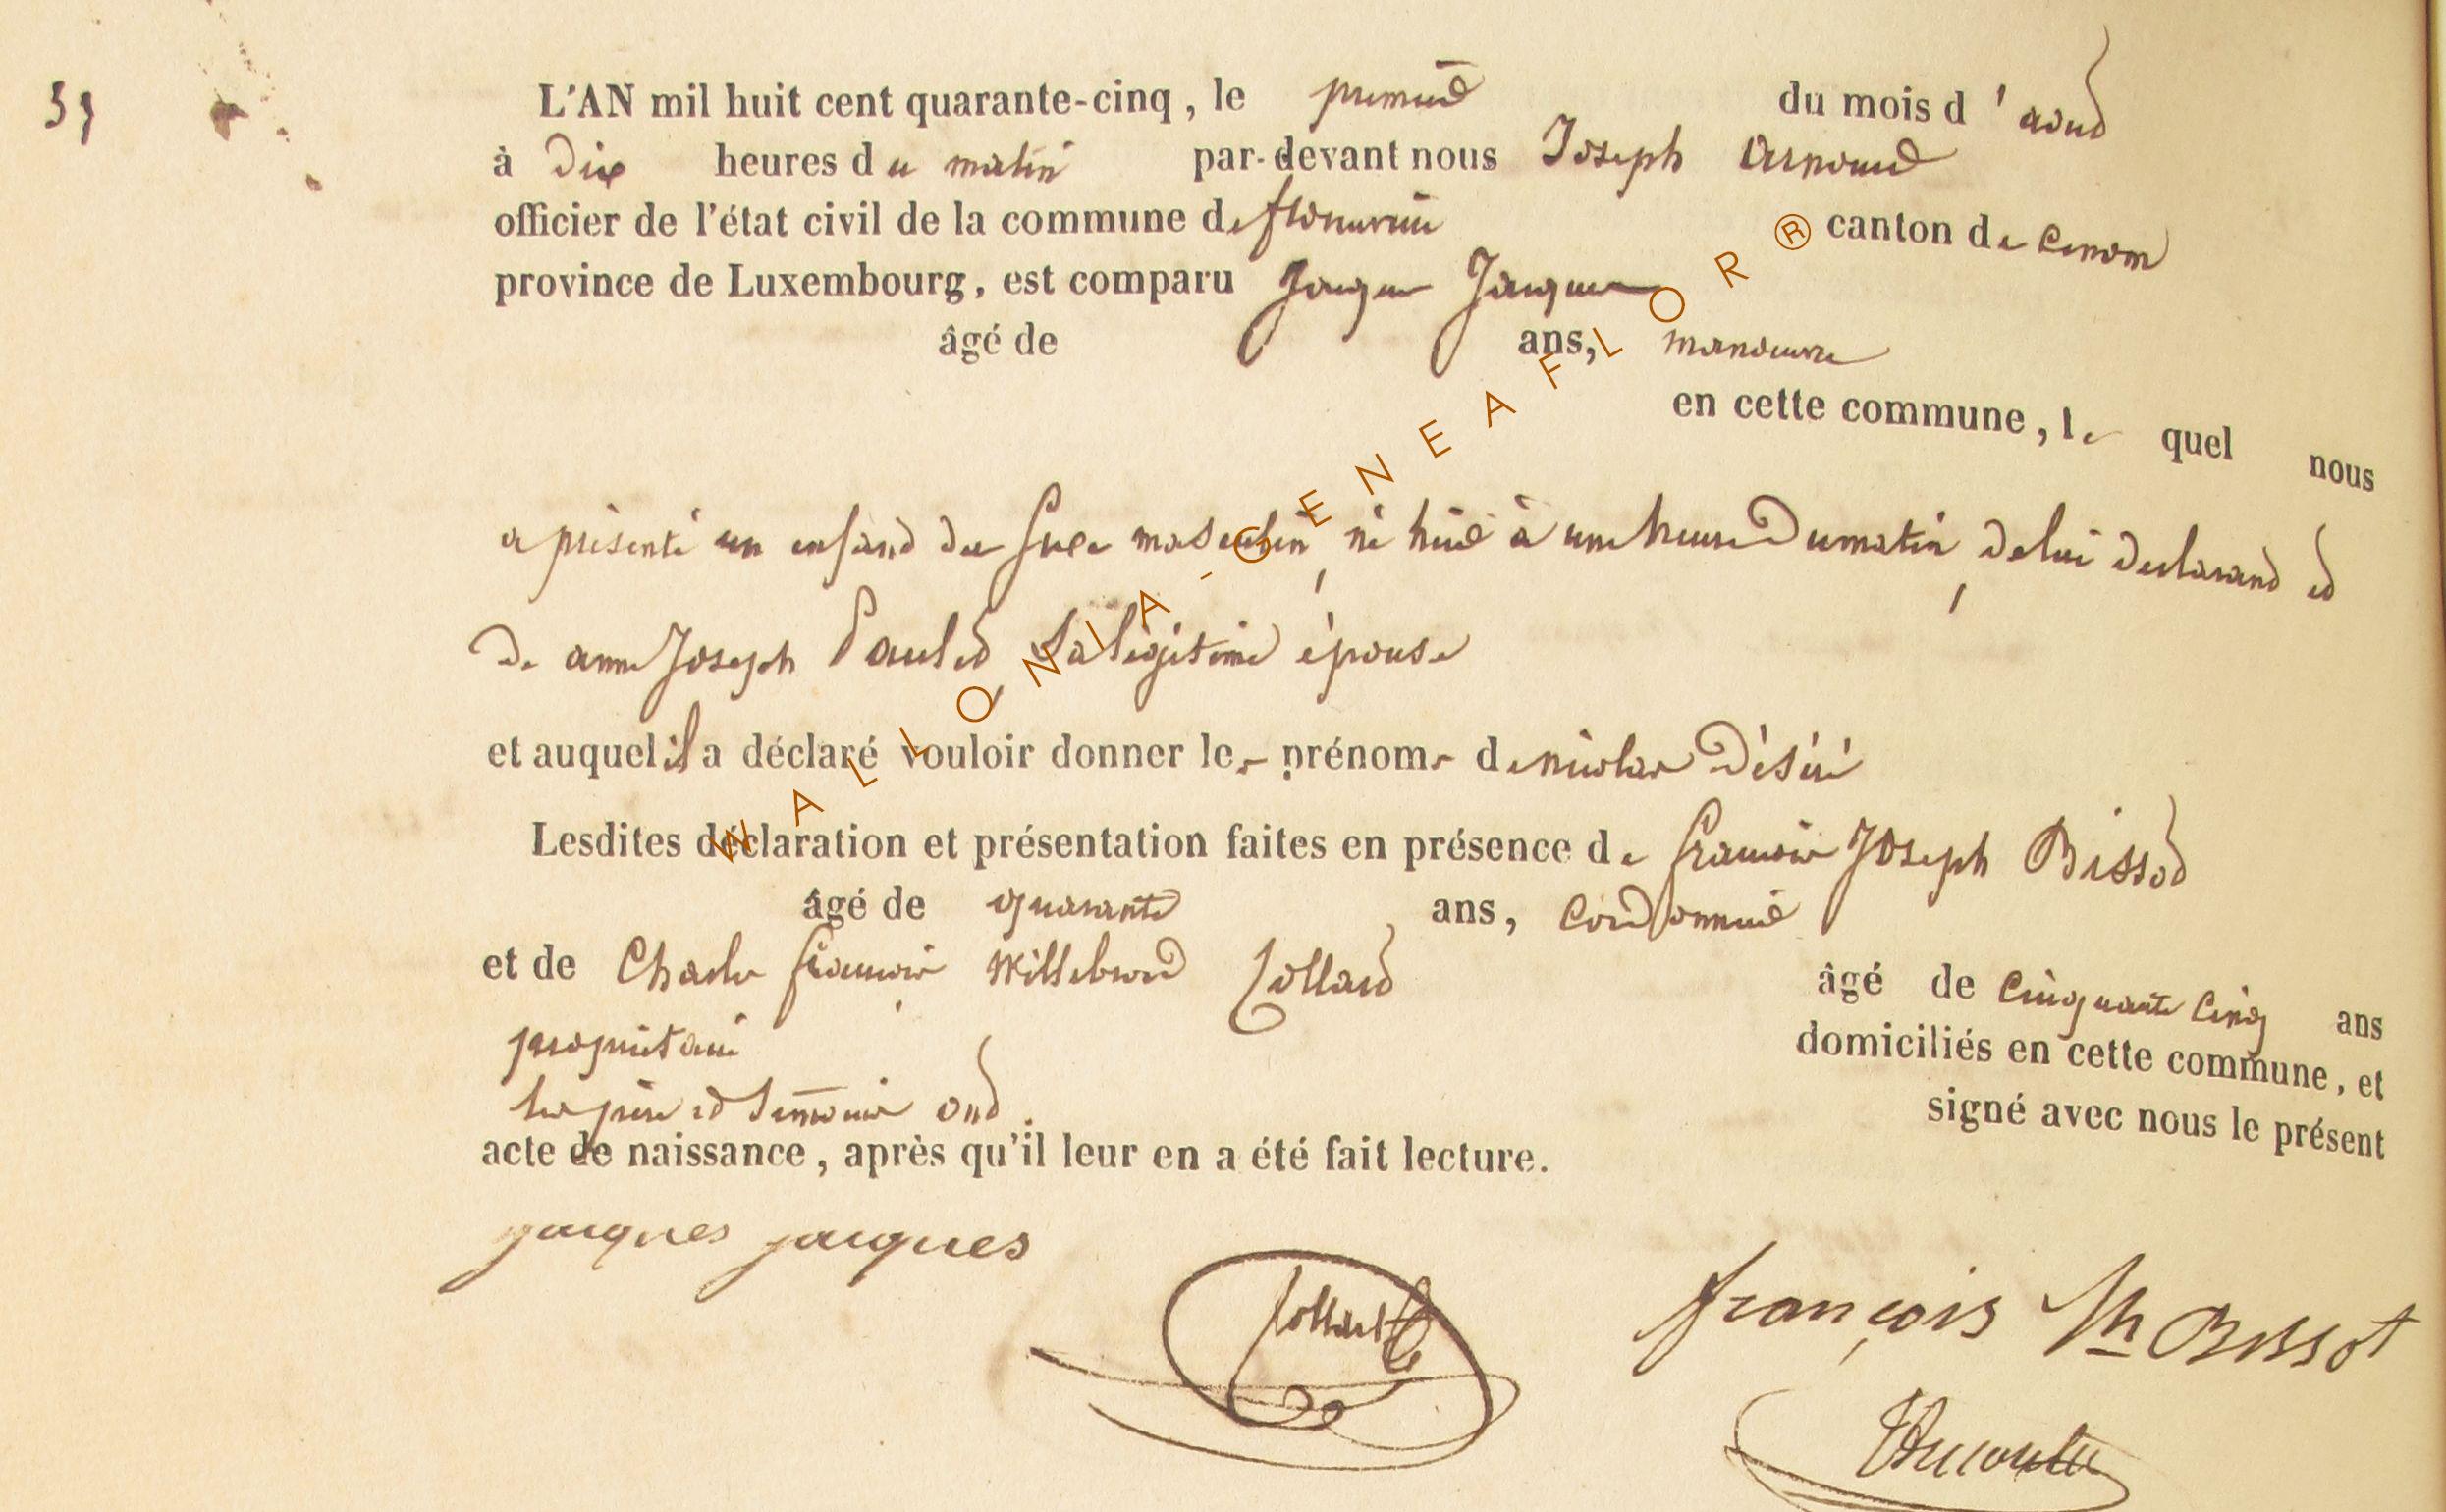 39
L'AN mil huit cent quarante-cinq, le premier du mois d'aout
à dix heures du matin par-devant nous Joseph Arnould
officier de l'état civil de la commune de florenville canton de
province de Luxembourg, est comparu Jacques Jacques
âgé de ans, manoeuvre
en cette commune, lequel nous
a présenté un enfant du sexe masculin, né hier à une heure du matin, de lui declarant et
de anne Joseph Paulet sa légitime épouse
et auquel il a déclaré vouloir donner les prénoms de nicolas Désiré
Lesdites déclaration et présentation faites en présence de françois Joseph Bissot
âgé de quarante ans, cordonnier
et de Charles françois Willebrord Collard âgé de cinquante cinq ans
propriétaire domiciliés en cette commune, et
les père et témoins ont signé avec nous le présent
acte de naissance, après qu'il leur en a été fait lecture.
jacques jacques
Collard
françois Jh Bissot
WALLONIA-GENEAFLOR®